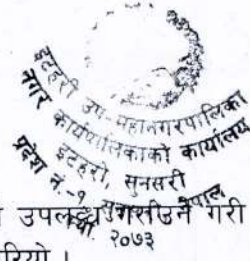 इटहरी उप-महानगरपालिका
नगर कार्यपालिकाको कार्यालय
इटहरी, सुनसरी
प्रदेश नं.-१ नेपाल
२०७३
उपलब्ध गरी
रियो ।